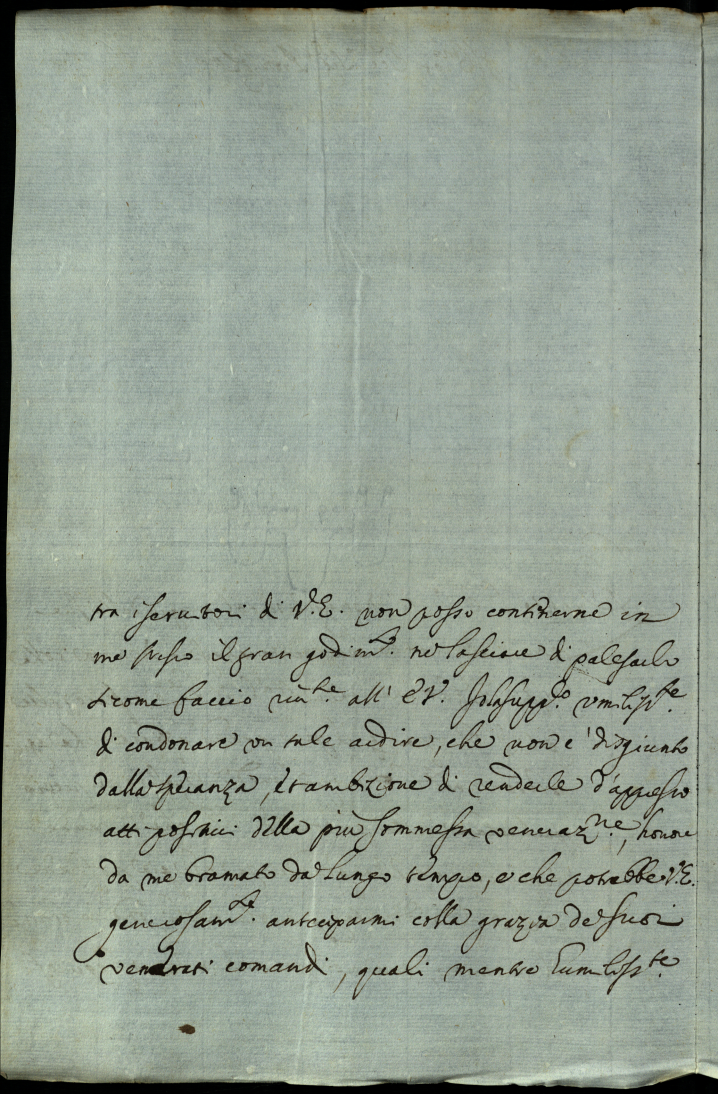 tra i servitori di V.E. non posso contenerne in
me stesso il gran godim.to ne lasciare di palesarlo
sicome faccio um.te all' E.V. Io la supp.o umiliss.te
di condonare un tale ardire, che non e' disgiunto
dalla speranza, et ambizione di renderle d'appresso
atti positivi della più sommessa veneraz.ne, honore
da me bramato da lungo tempo, e che potrebbe V.E.
generosam.te anteciparmi colla grazia de suoi
venerati comandi, quali mentre humiliss.te